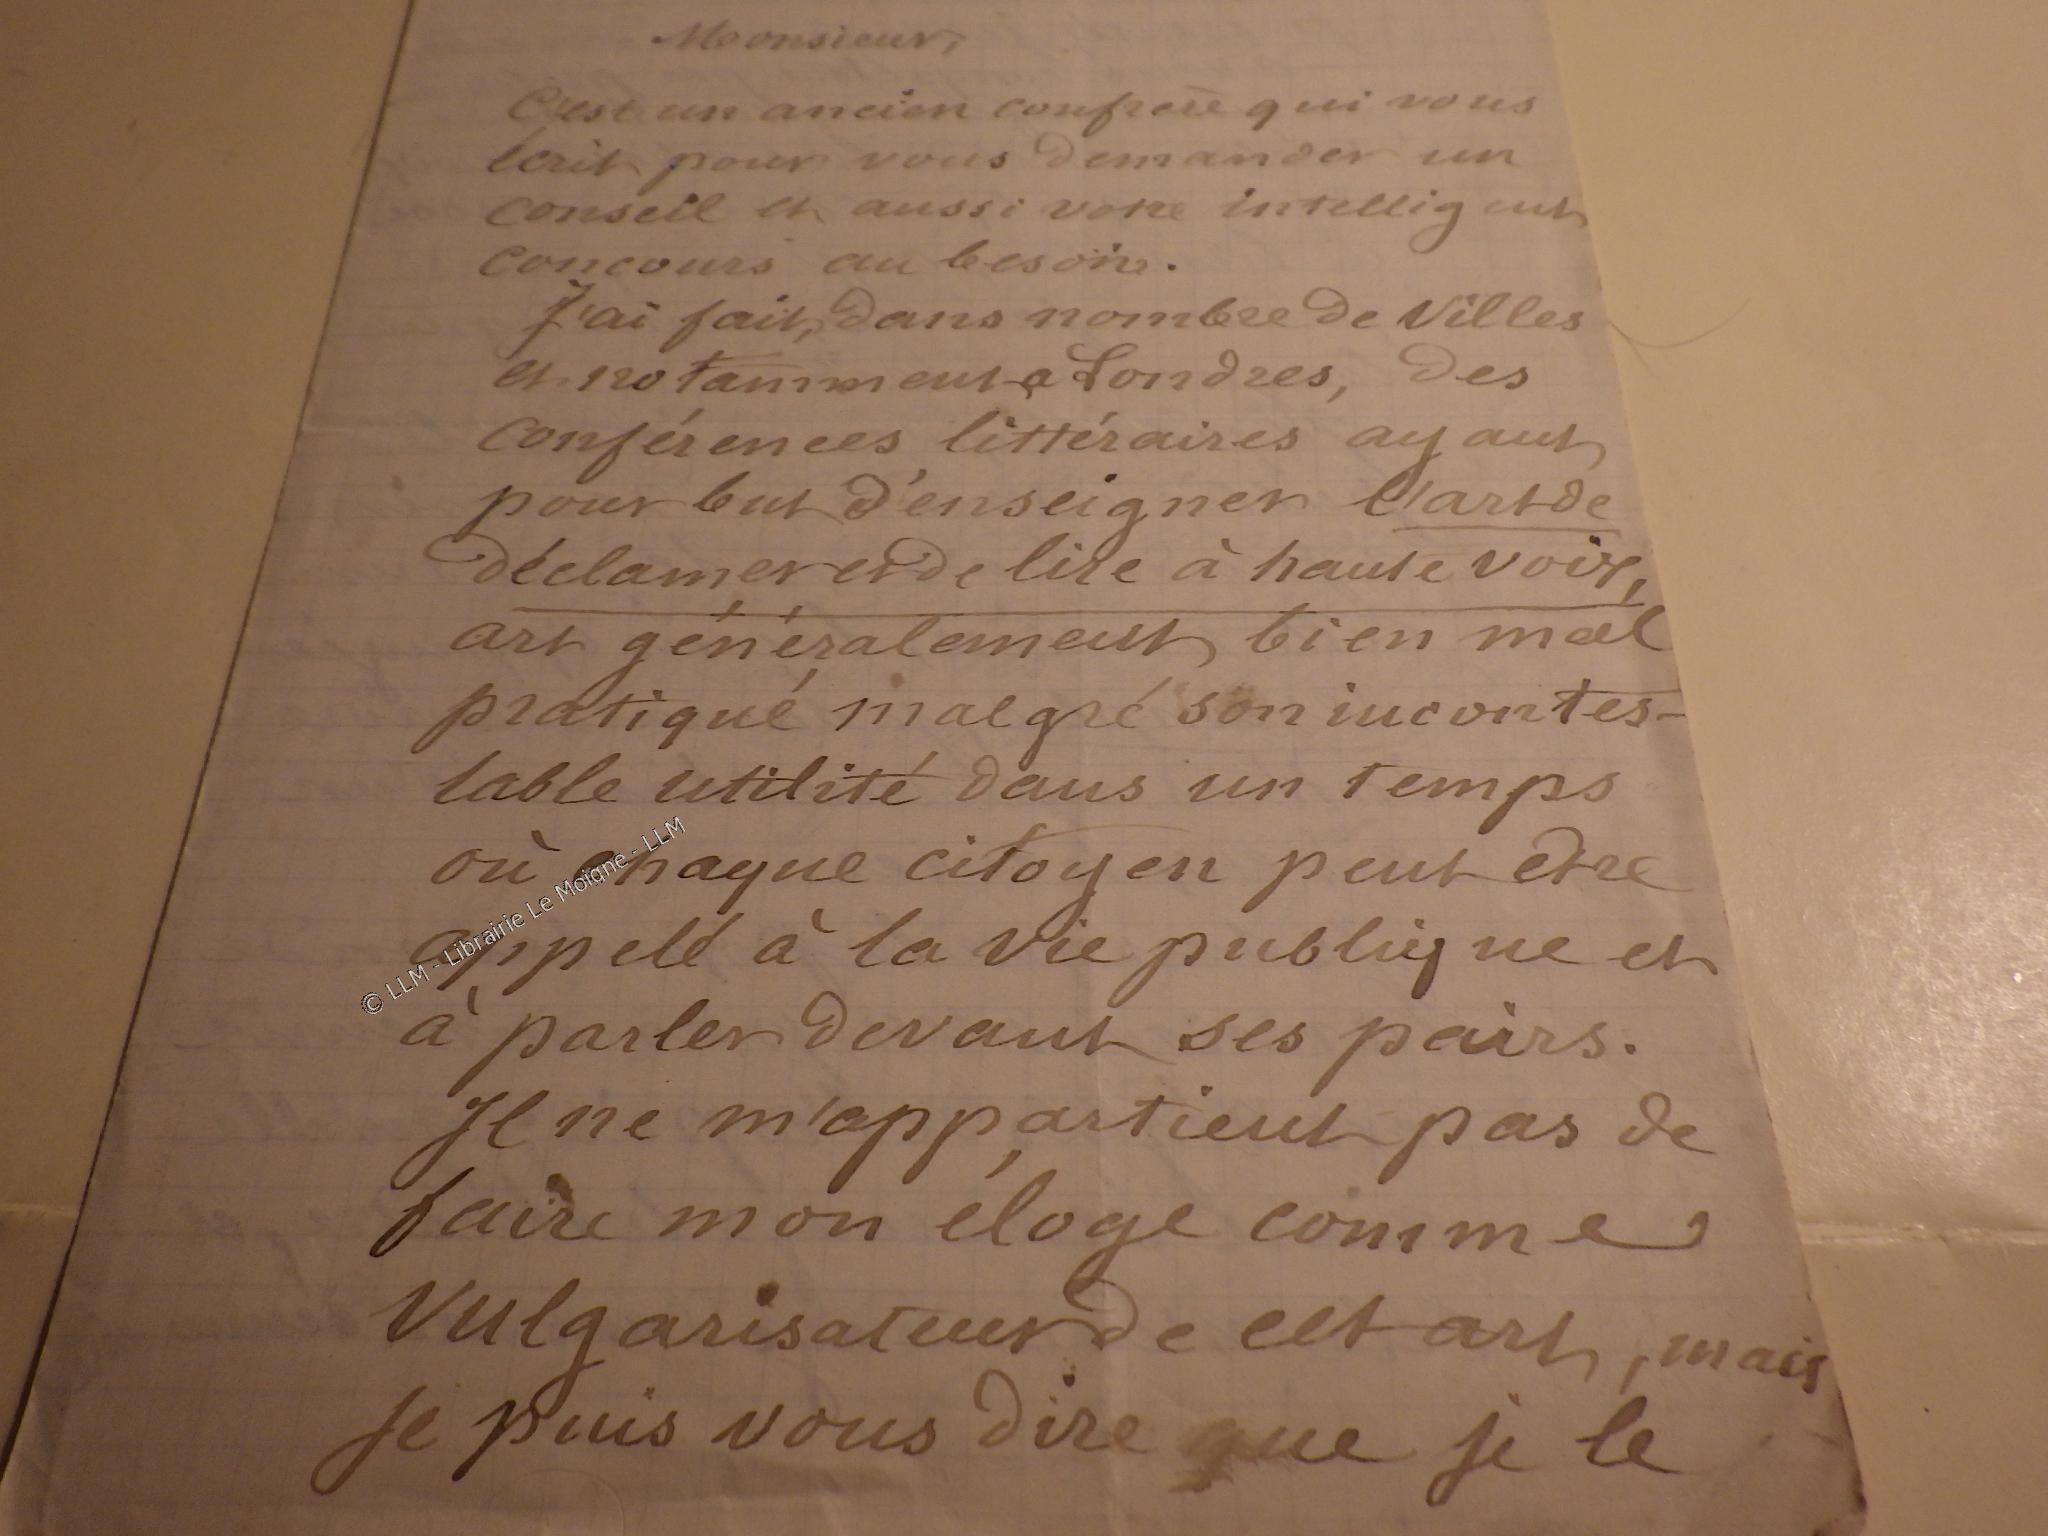 Monsieur,
C'est un ancien confrère qui vous
écrit pour vous demander un
conseil et aussi votre intelligent
concours au besoin.
J'ai fait, dans nombre de Villes
et notamment à Londres, des
conférences littéraires ayant
pour but d'enseigner l'art de
déclamer et de lire à haute voix,
art généralement bien mal
pratiqué malgré son incontes-
table utilité dans un temps
où chaque citoyen peut être
appelé à la vie publique et
à parler devant ses pairs.
Il ne m'appartient pas de
faire mon éloge comme
vulgarisateur de cet art, mais
je puis vous dire que je le
© LLM - Librairie Le Moigne - LLM